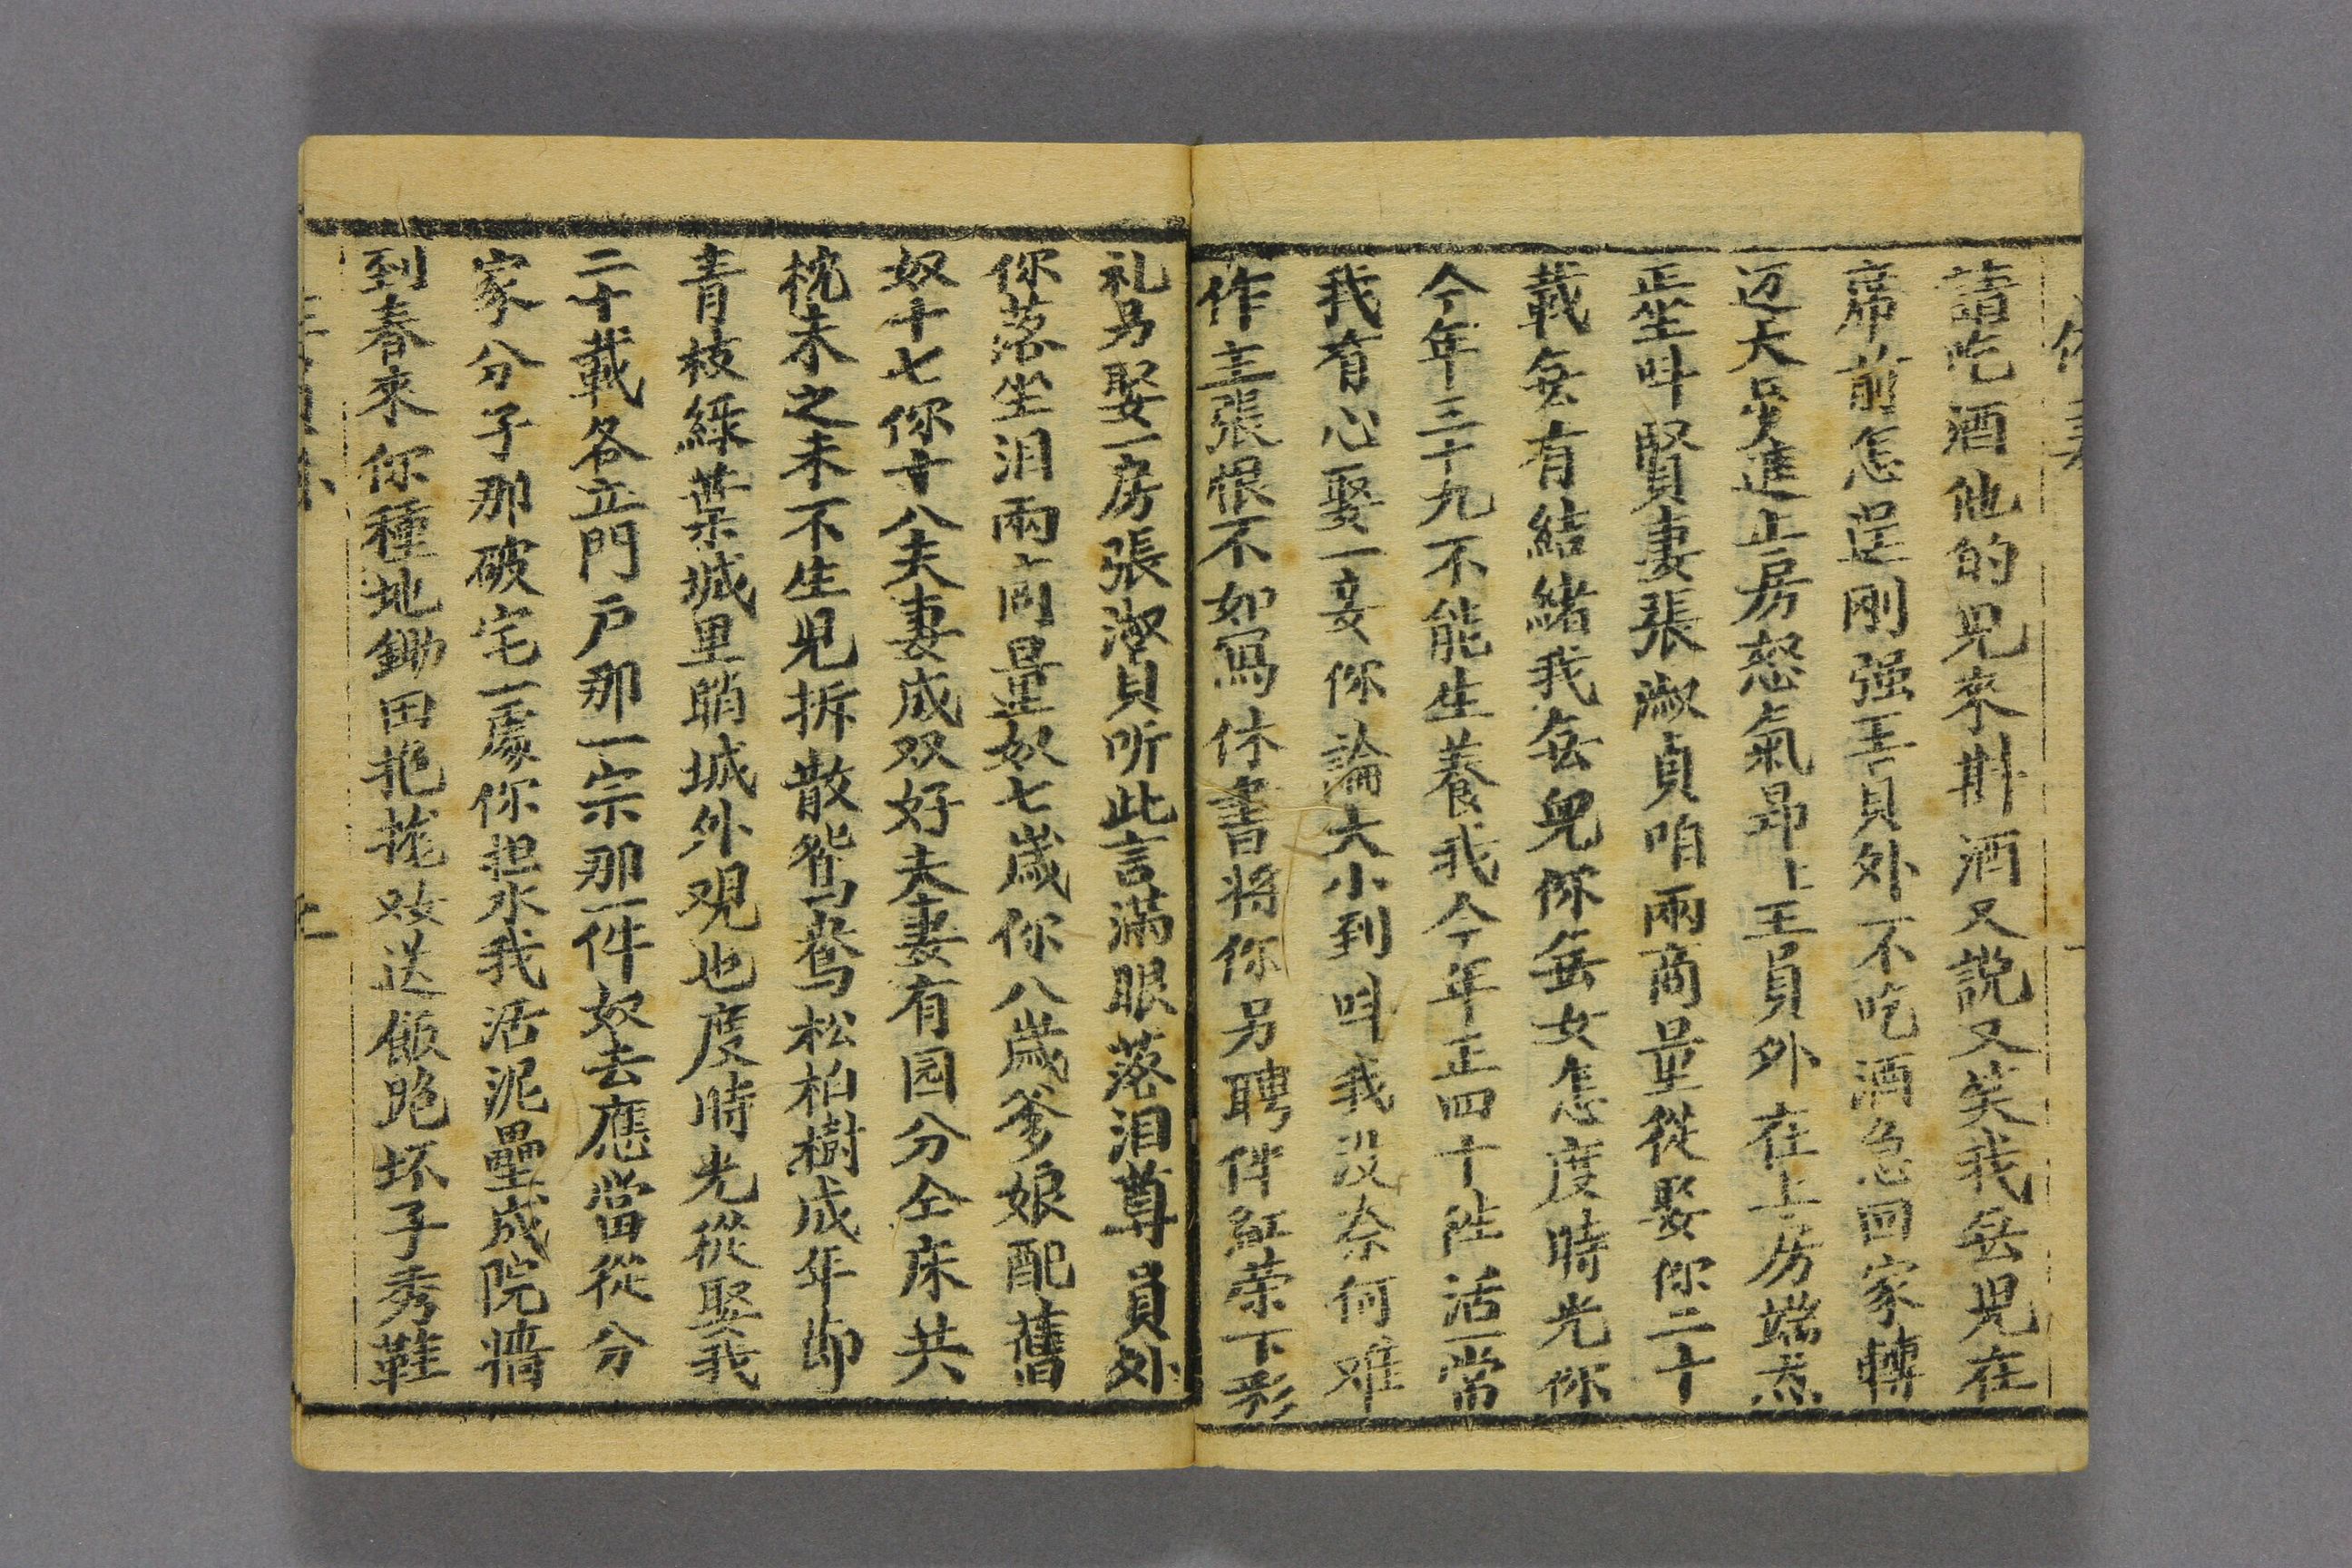 請吃酒他的児來斟酒又説又笑我無児在
席前怎逞剛强王員外不吃酒急回家轉
迈大步進上房怒氣昂上王員外在上房端然
正坐呌賢妻張淑貞咱兩商量從娶你二十
載無有結緒我無兒你無女怎度時光你
今年三十九不能生養我今年正四十陡活一當
我有心娶一妾你論大小到呌我没奈何难
作主張恨不如寫休書将你另聘伴紅荣下彩
礼另娶一房張淑貞听此言满眼落泪尊員外
你落坐泪兩商量奴七歲你八歲爹娘配舊
奴十七你十八夫妻成双好夫妻有园分仝床共
枕未之未不生児拆散鴛鸯松柏樹成年郎
青枝緑葉城里聩城外观也度時光從娶我
二十載各立門户那一宗那一件奴去應當從分
家分子那破宅一處你担水我活泥壘成院墻
到春來你種地鋤田拖𢪎奴送飯跪坏子秀鞋